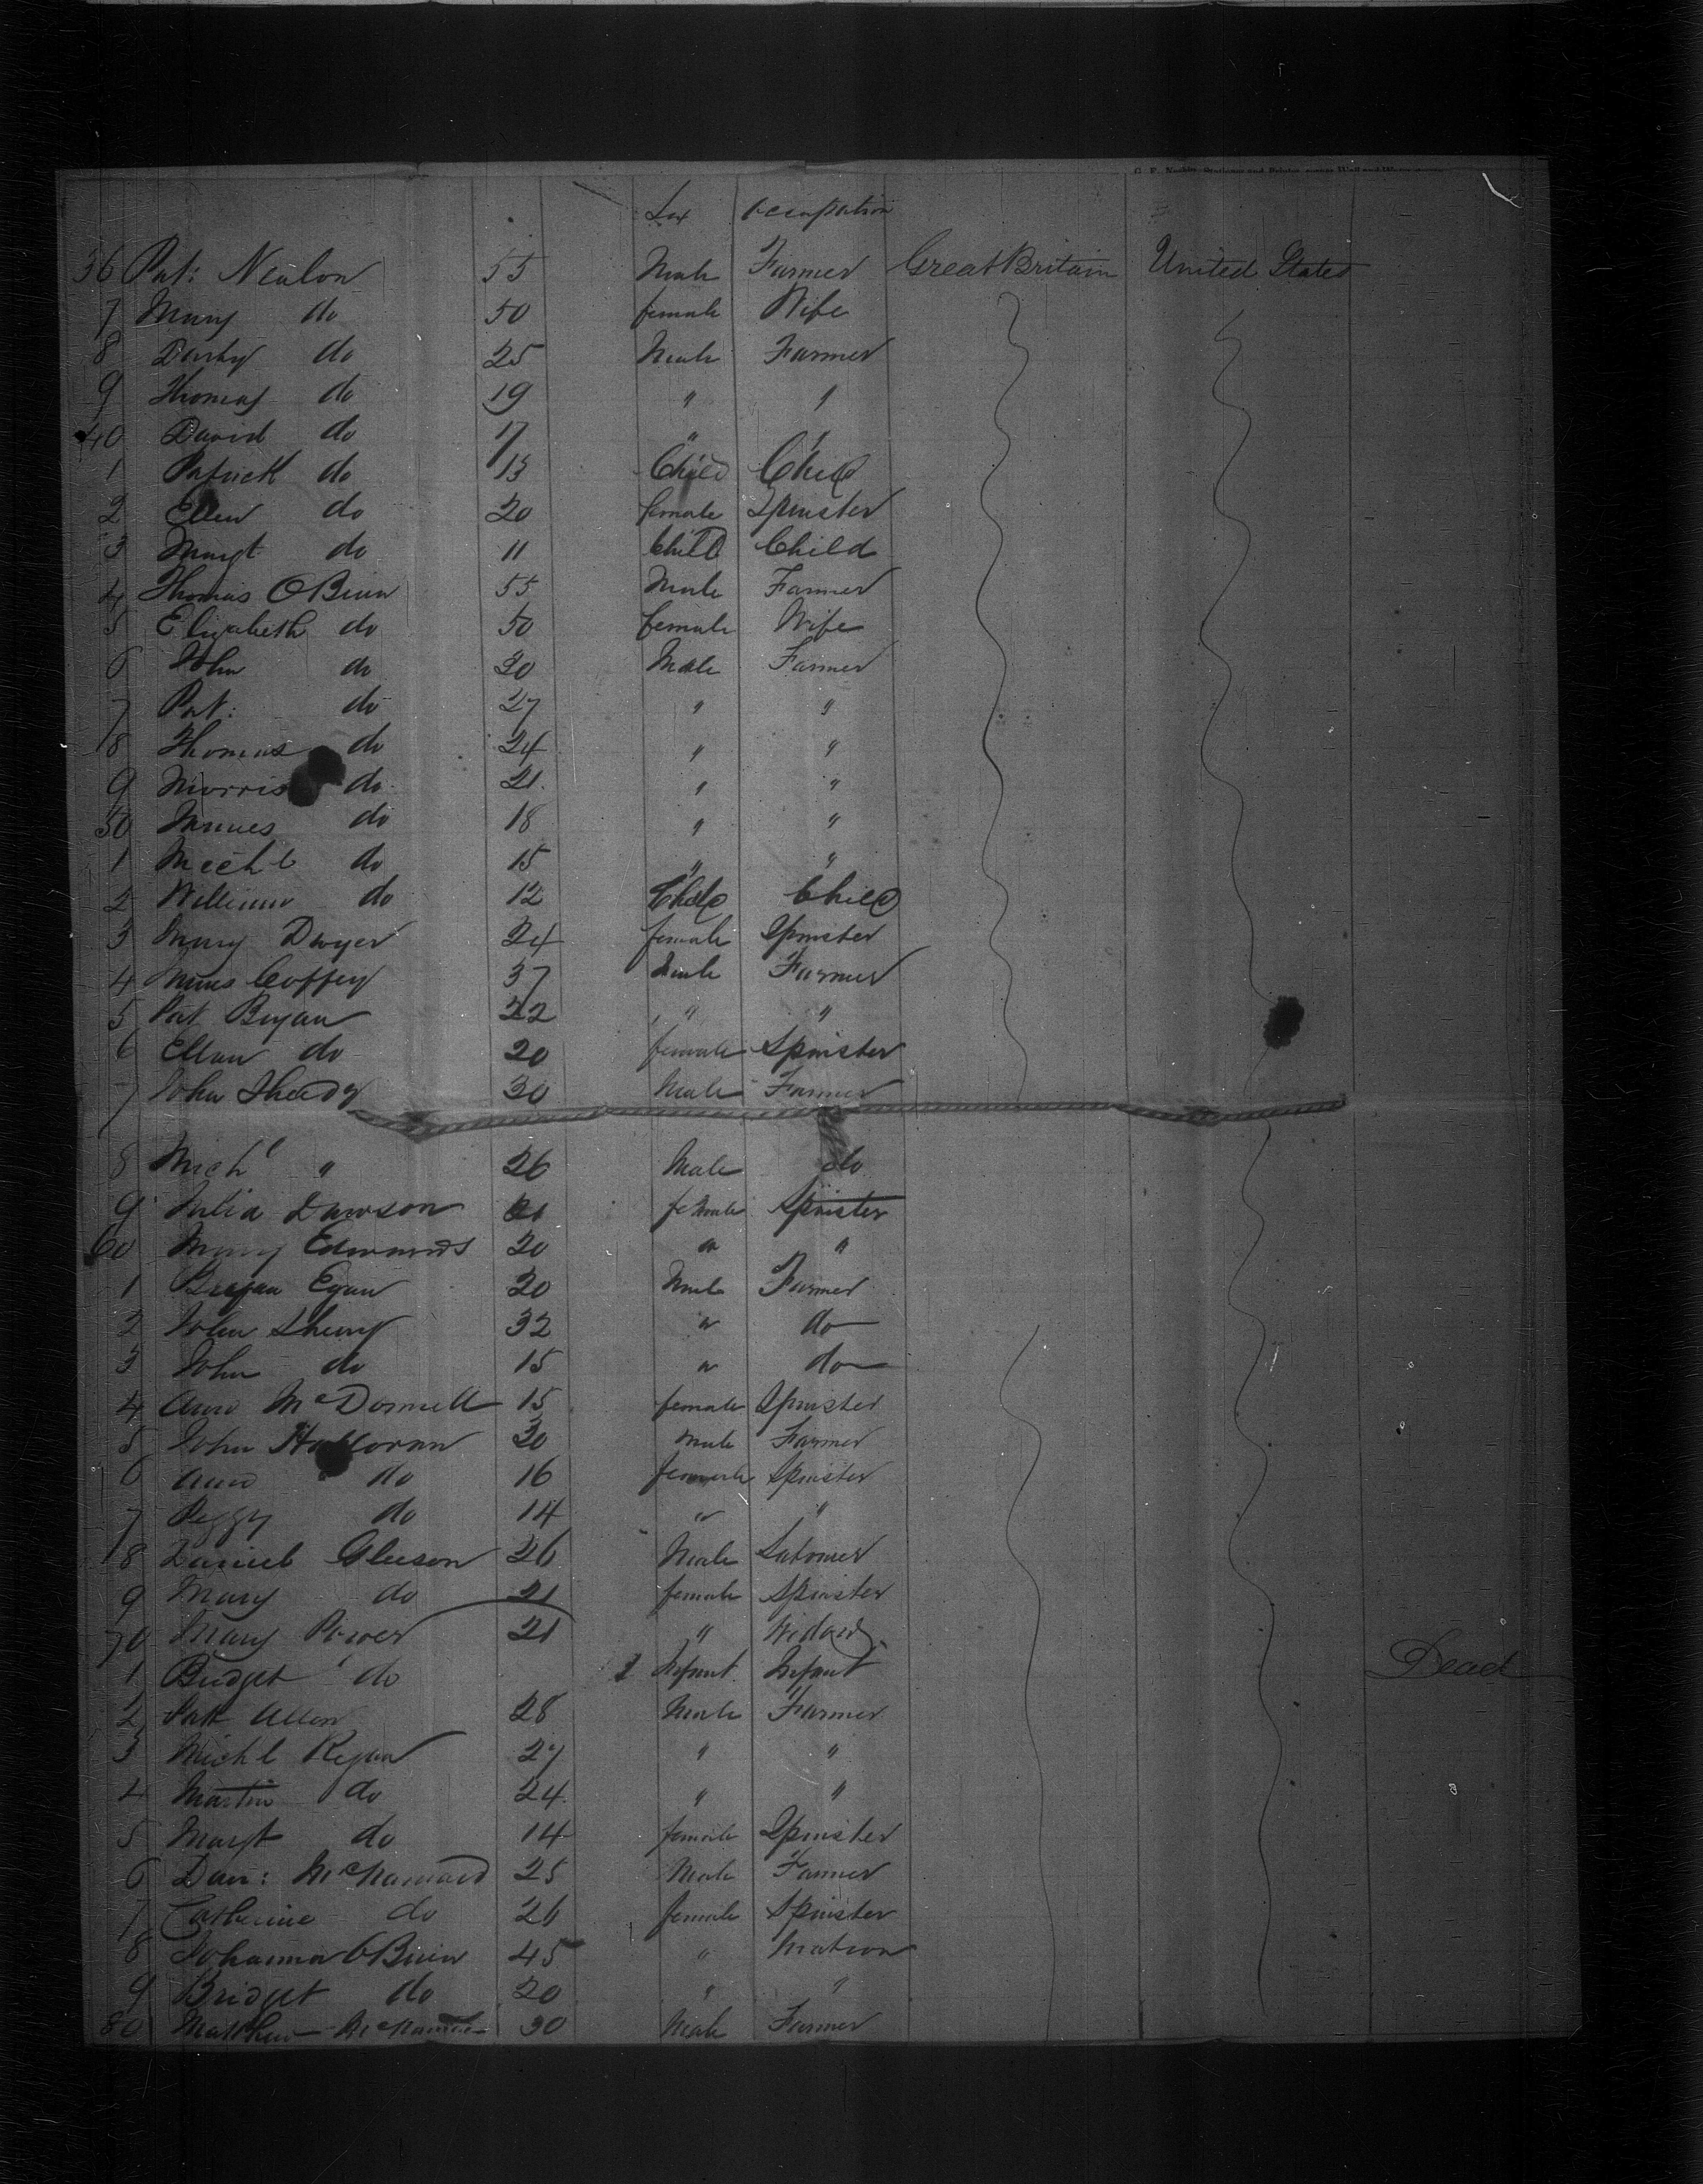 Sex Occupation
36 Pat: Nealon 55 Male Farmer Great Britain United States
7 Mary do 50 female Wife
8 Darby do 25 Male Farmer
9 Thomas do 19 " "
40 David do 17 " "
1 Patrick do 13 Child Child
2 Ellen do 20 female Spinster
3 Margt do 11 Child Child
4 Thomas OBrien 55 Male Farmer
5 Elizabeth do 50 female Wife
6 John do 30 Male Farmer
7 Pat: do 27 " "
8 Thomas do 24 " "
9 Morris do 21 " "
50 James do 18 " "
1 Michl do 15 " "
2 William do 12 Child Child
3 Mary Dwyer 24 female Spinster
4 James Coffey 37 Male Farmer
5 Pat Bryan 22 " "
6 Ellen do 20 female Spinster
7 John 30 Male Farmer
8 Michl " 26 Male do
9 Julia Dawson female Spinster
60 Mary Edwards 20 " "
1 Bryan Egan 20 Male Farmer
2 John 32 " do
3 John do 15 " do
4 Ann McDonnell 15 female Spinster
5 John Halloran 30 male Farmer
6 Ann do 16 female Spinster
7 Peggy do 14 " "
8 Daniel Gleeson 26 Male Labourer
9 Mary do 21 female Spinster
70 Mary Power 21 " Widow
1 Bridget do Infant Infant Dead
2 Patt Allen 28 Male Farmer
3 Michl Regan 27 " "
4 Martin do 24 " "
5 Margt do 14 female Spinster
6 Dan: 25 Male Farmer
7 Catherine do 26 female Spinster
8 Johanna OBrien 45 " Matron
9 Bridget do 20 " "
80 Matthew 30 Male Farmer